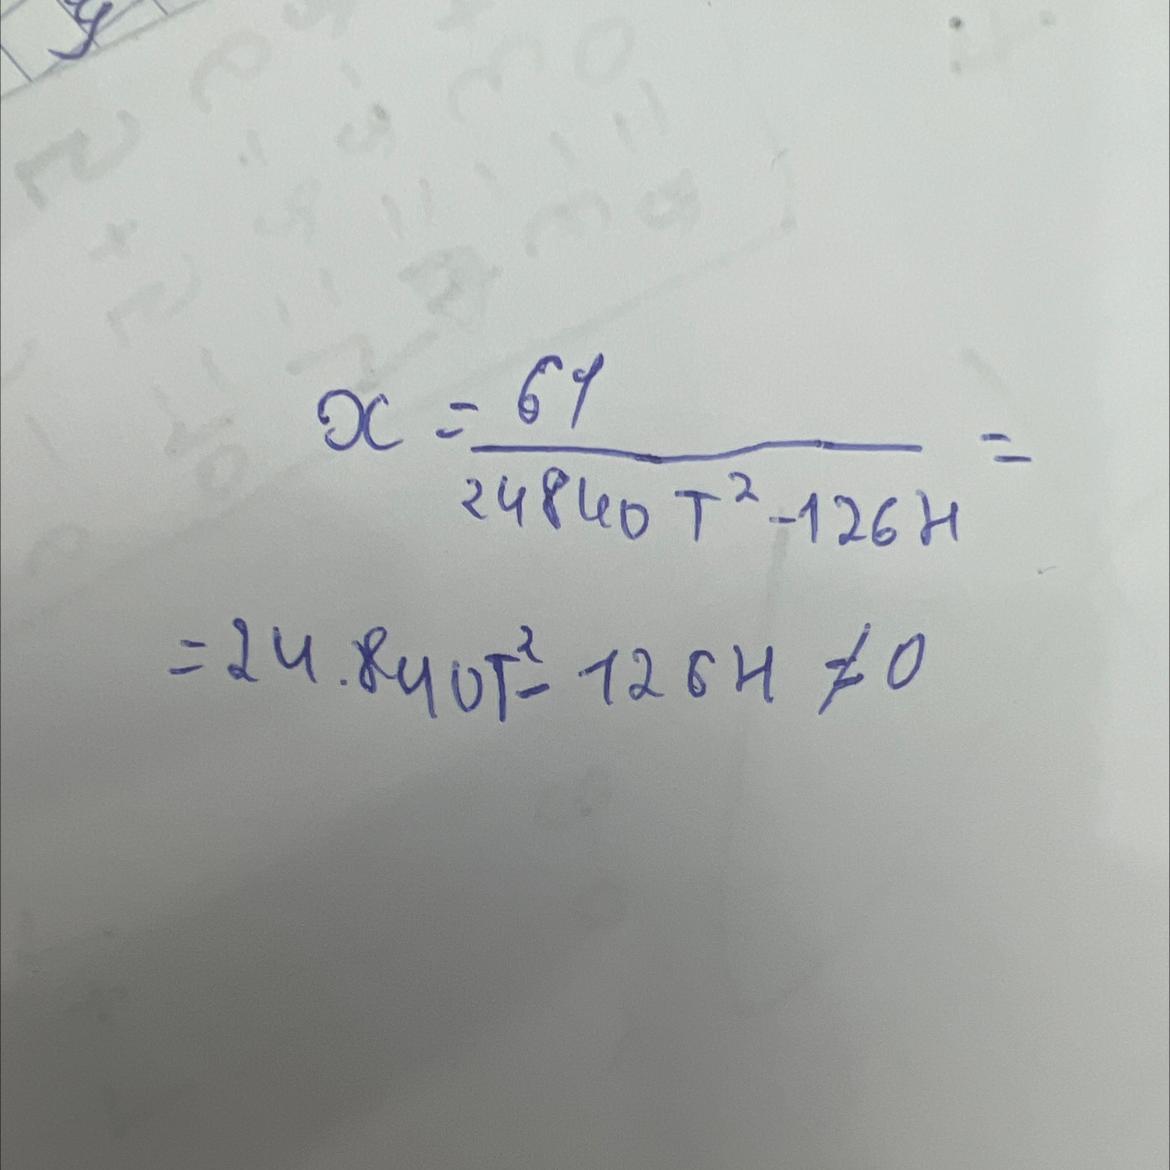 x = 61
24840 T² - 126H =
= 24.840T² - 126H ≠ 0